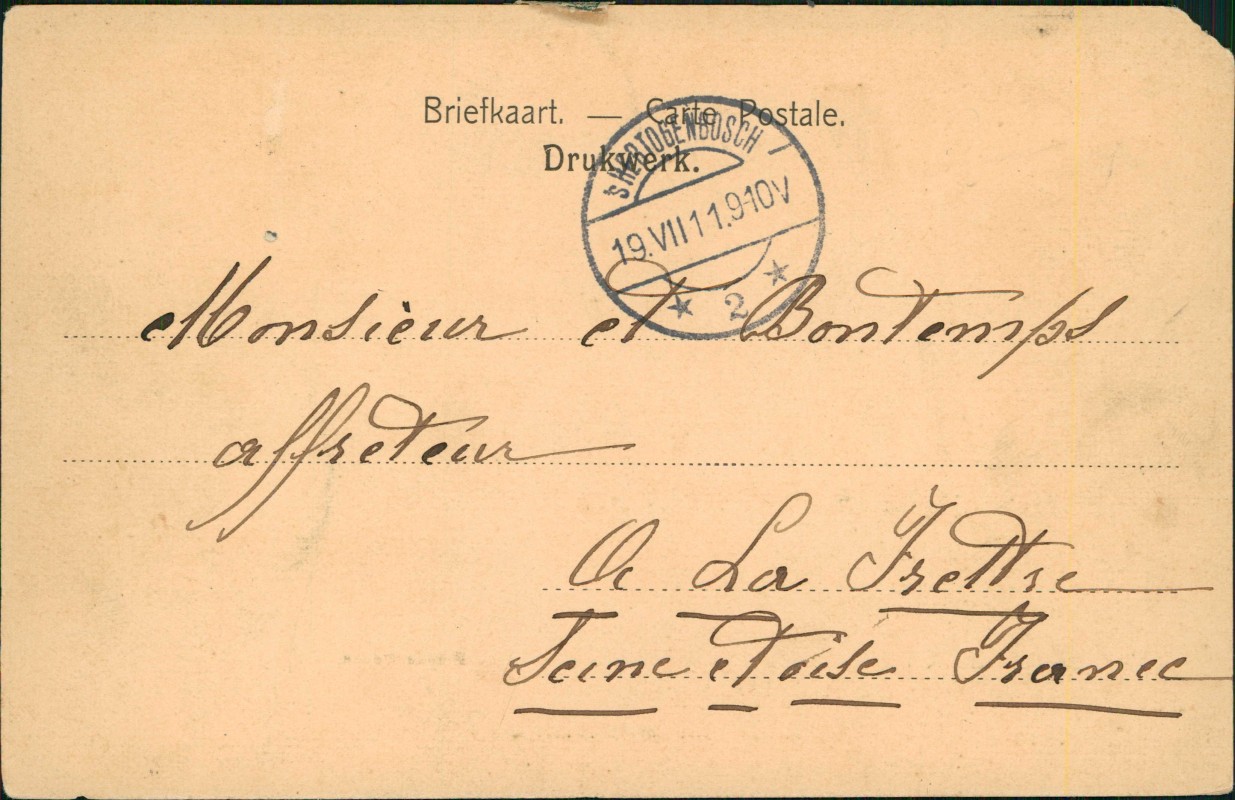 Briefkaart. — Carte Postale.
Drukwerk.
's HERTOGENBOSCH
19.VII 11.9-10V
★ 2 ★
Monsieur et Bontemps
affreteur
A La Frettre
Seine et oise France